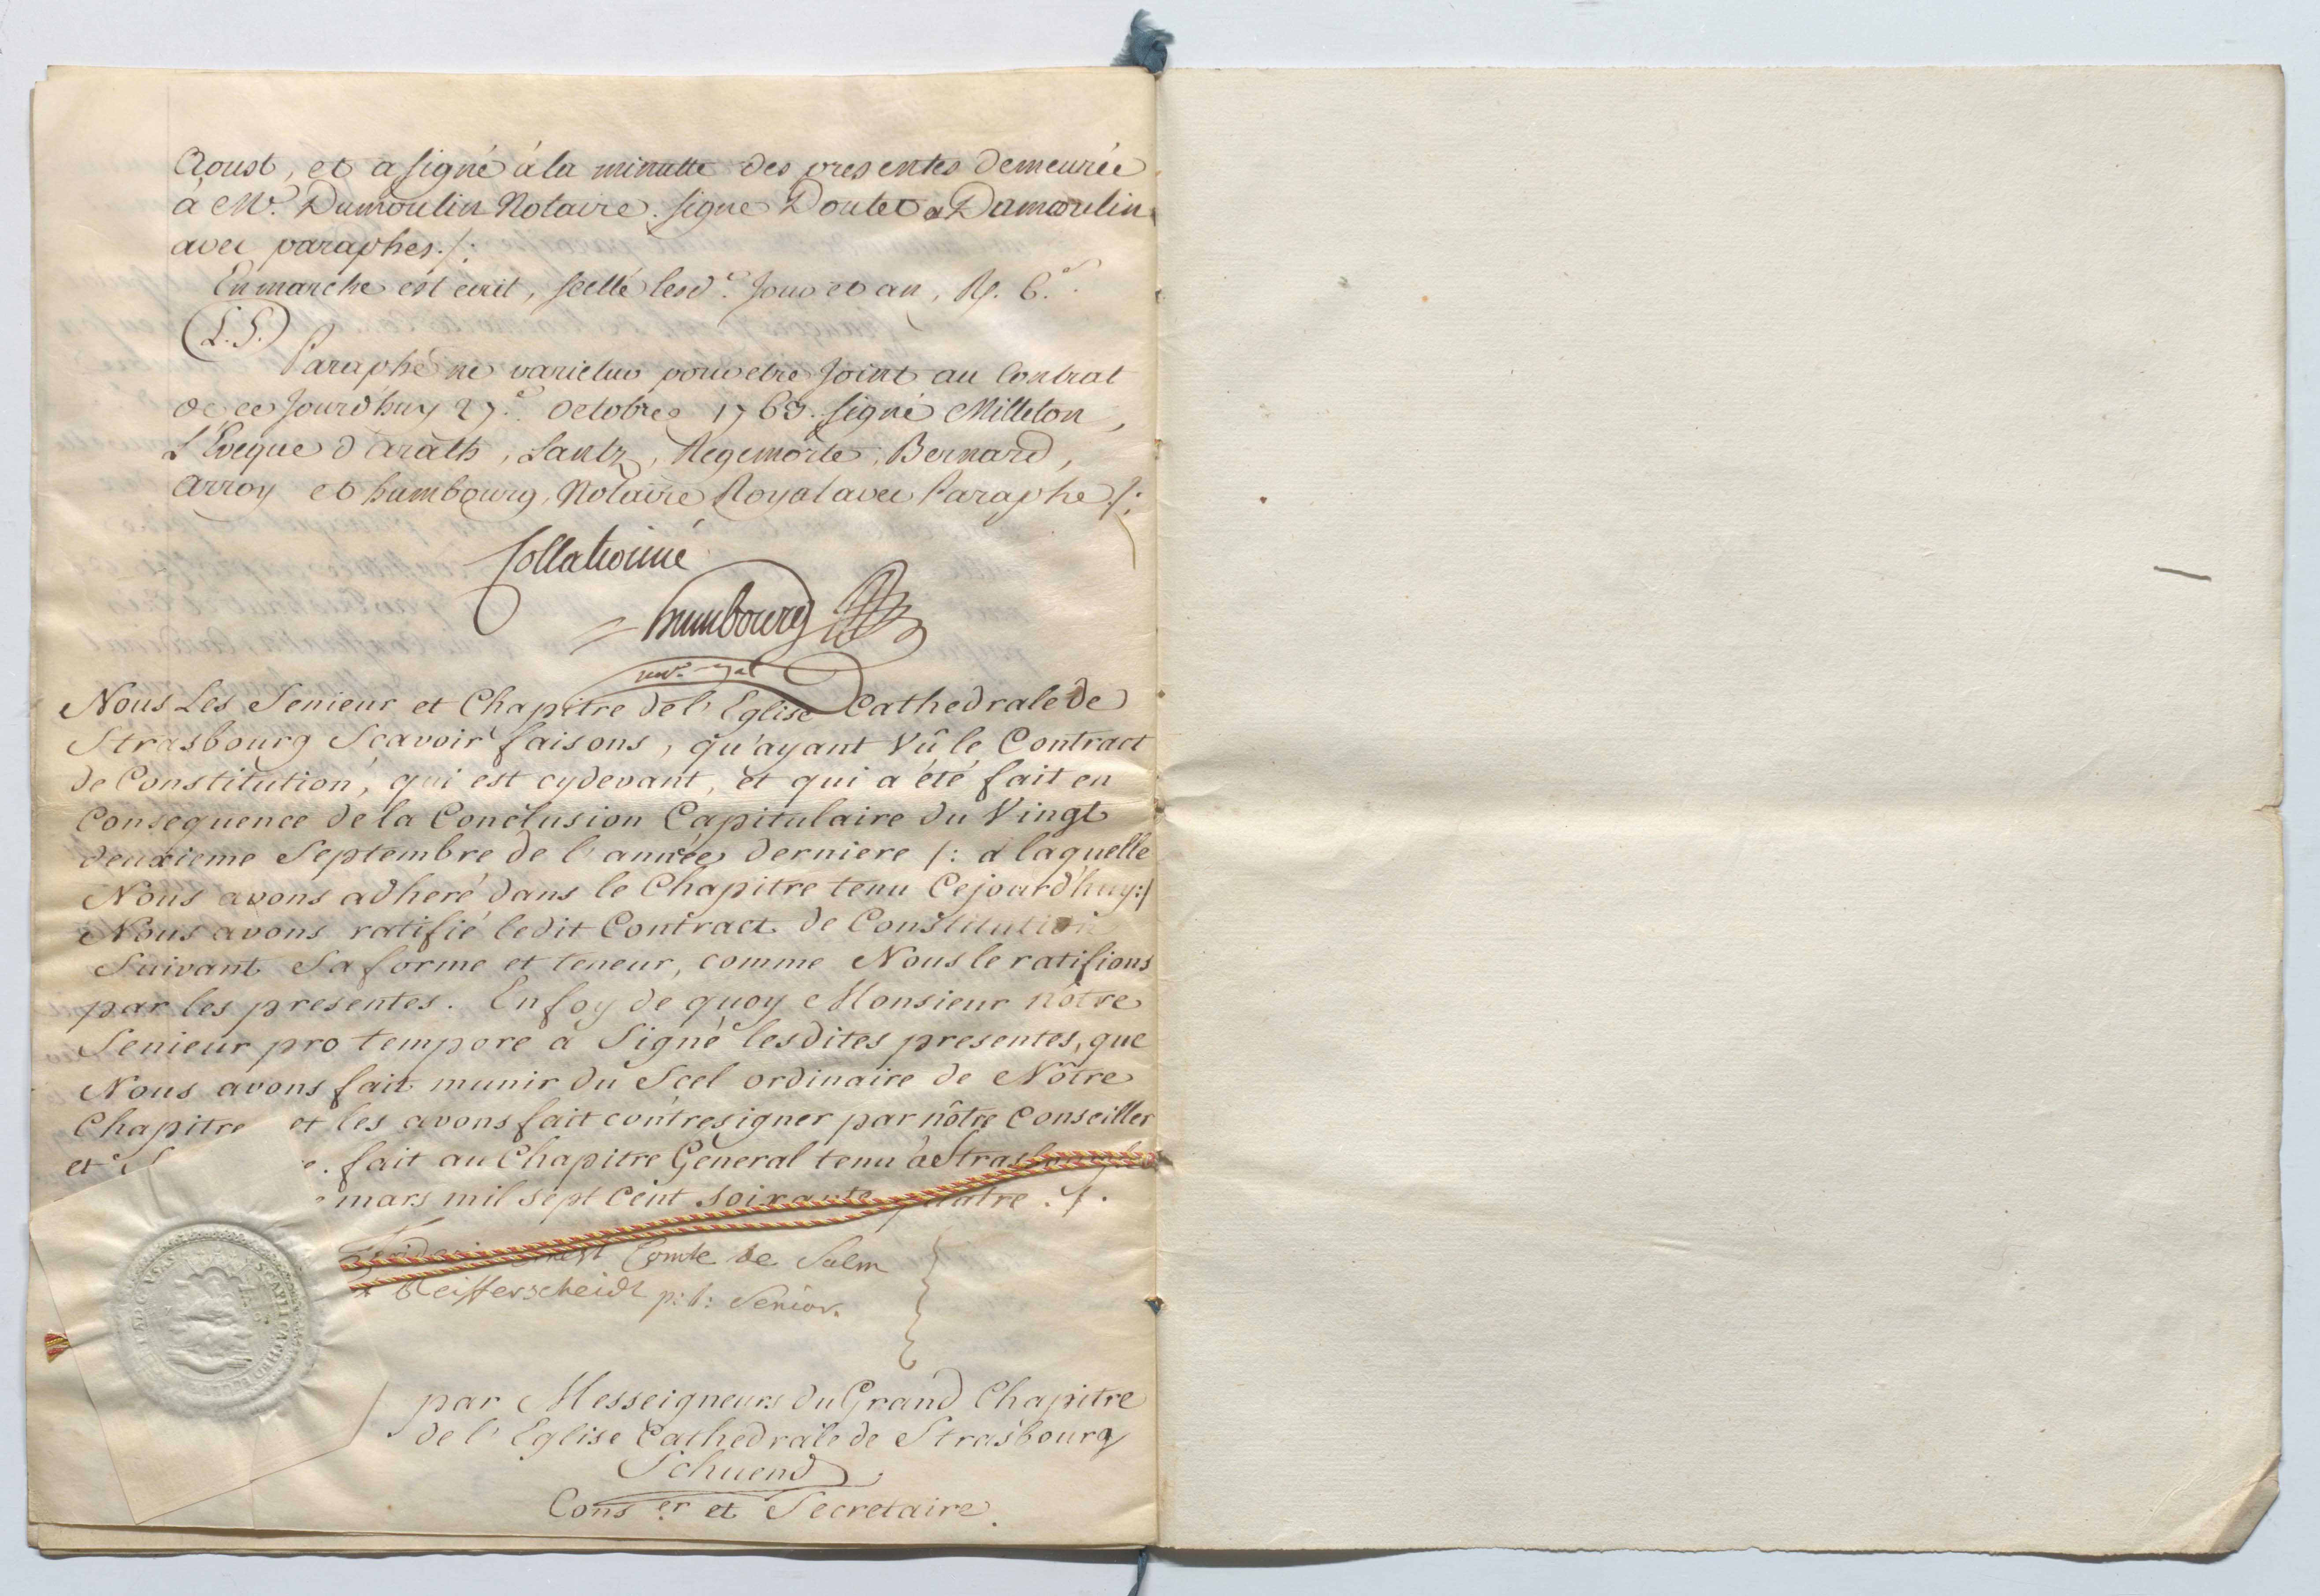 Aoust, et a signé à la minutte des presentes demeurée
à Me. Dumoulin Notaire. signé Doulet et Dumoulin
avec paraphes./:
En marche est ecrit, scellé lesd. jour et an,
(L.S.)
Paraphé ne varietur pour etre joint au Contrat
de ce jourd'huy 27e. Octobre 1763. signé Milleton,
L'Eveque d'Arath, Lantz, Regemorte, Bernard,
Arroy et humbourg, Notaire Royal avec Paraphe./:
Collationné
humbourg
Nous Les Senieur et Chapitre de l'Eglise Cathedrale de
Strasbourg Scavoir faisons, qu'ayant Vû le Contract
de Constitution, qui est cydevant, et qui a été fait en
Consequence de la Conclusion Capitulaire du Vingt
deuxieme Septembre de l'année derniere /: à laquelle
Nous avons adheré dans le Chapitre tenu Cejourd'huy:/
Nous avons ratifié ledit Contract de Constitution
Suivant Sa forme et teneur, comme Nous le ratifions
par les presentes. En foy de quoy Monsieur nôtre
Senieur pro tempore a Signé lesdites presentes, que
Nous avons fait munir du Scel ordinaire de Nôtre
Chapitre et les avons fait contresigner par nôtre Conseiller
et fait au Chapitre General tenu à Strasbourg
mars mil sept Cent soixante quatre ./.
Ernest Comte de Salm
Reifferscheidt p:t: Senior.
par Messeigneurs du Grand Chapitre
de l'Eglise Cathedrale de Strasbourg
Schuend
Conser et Secretaire.